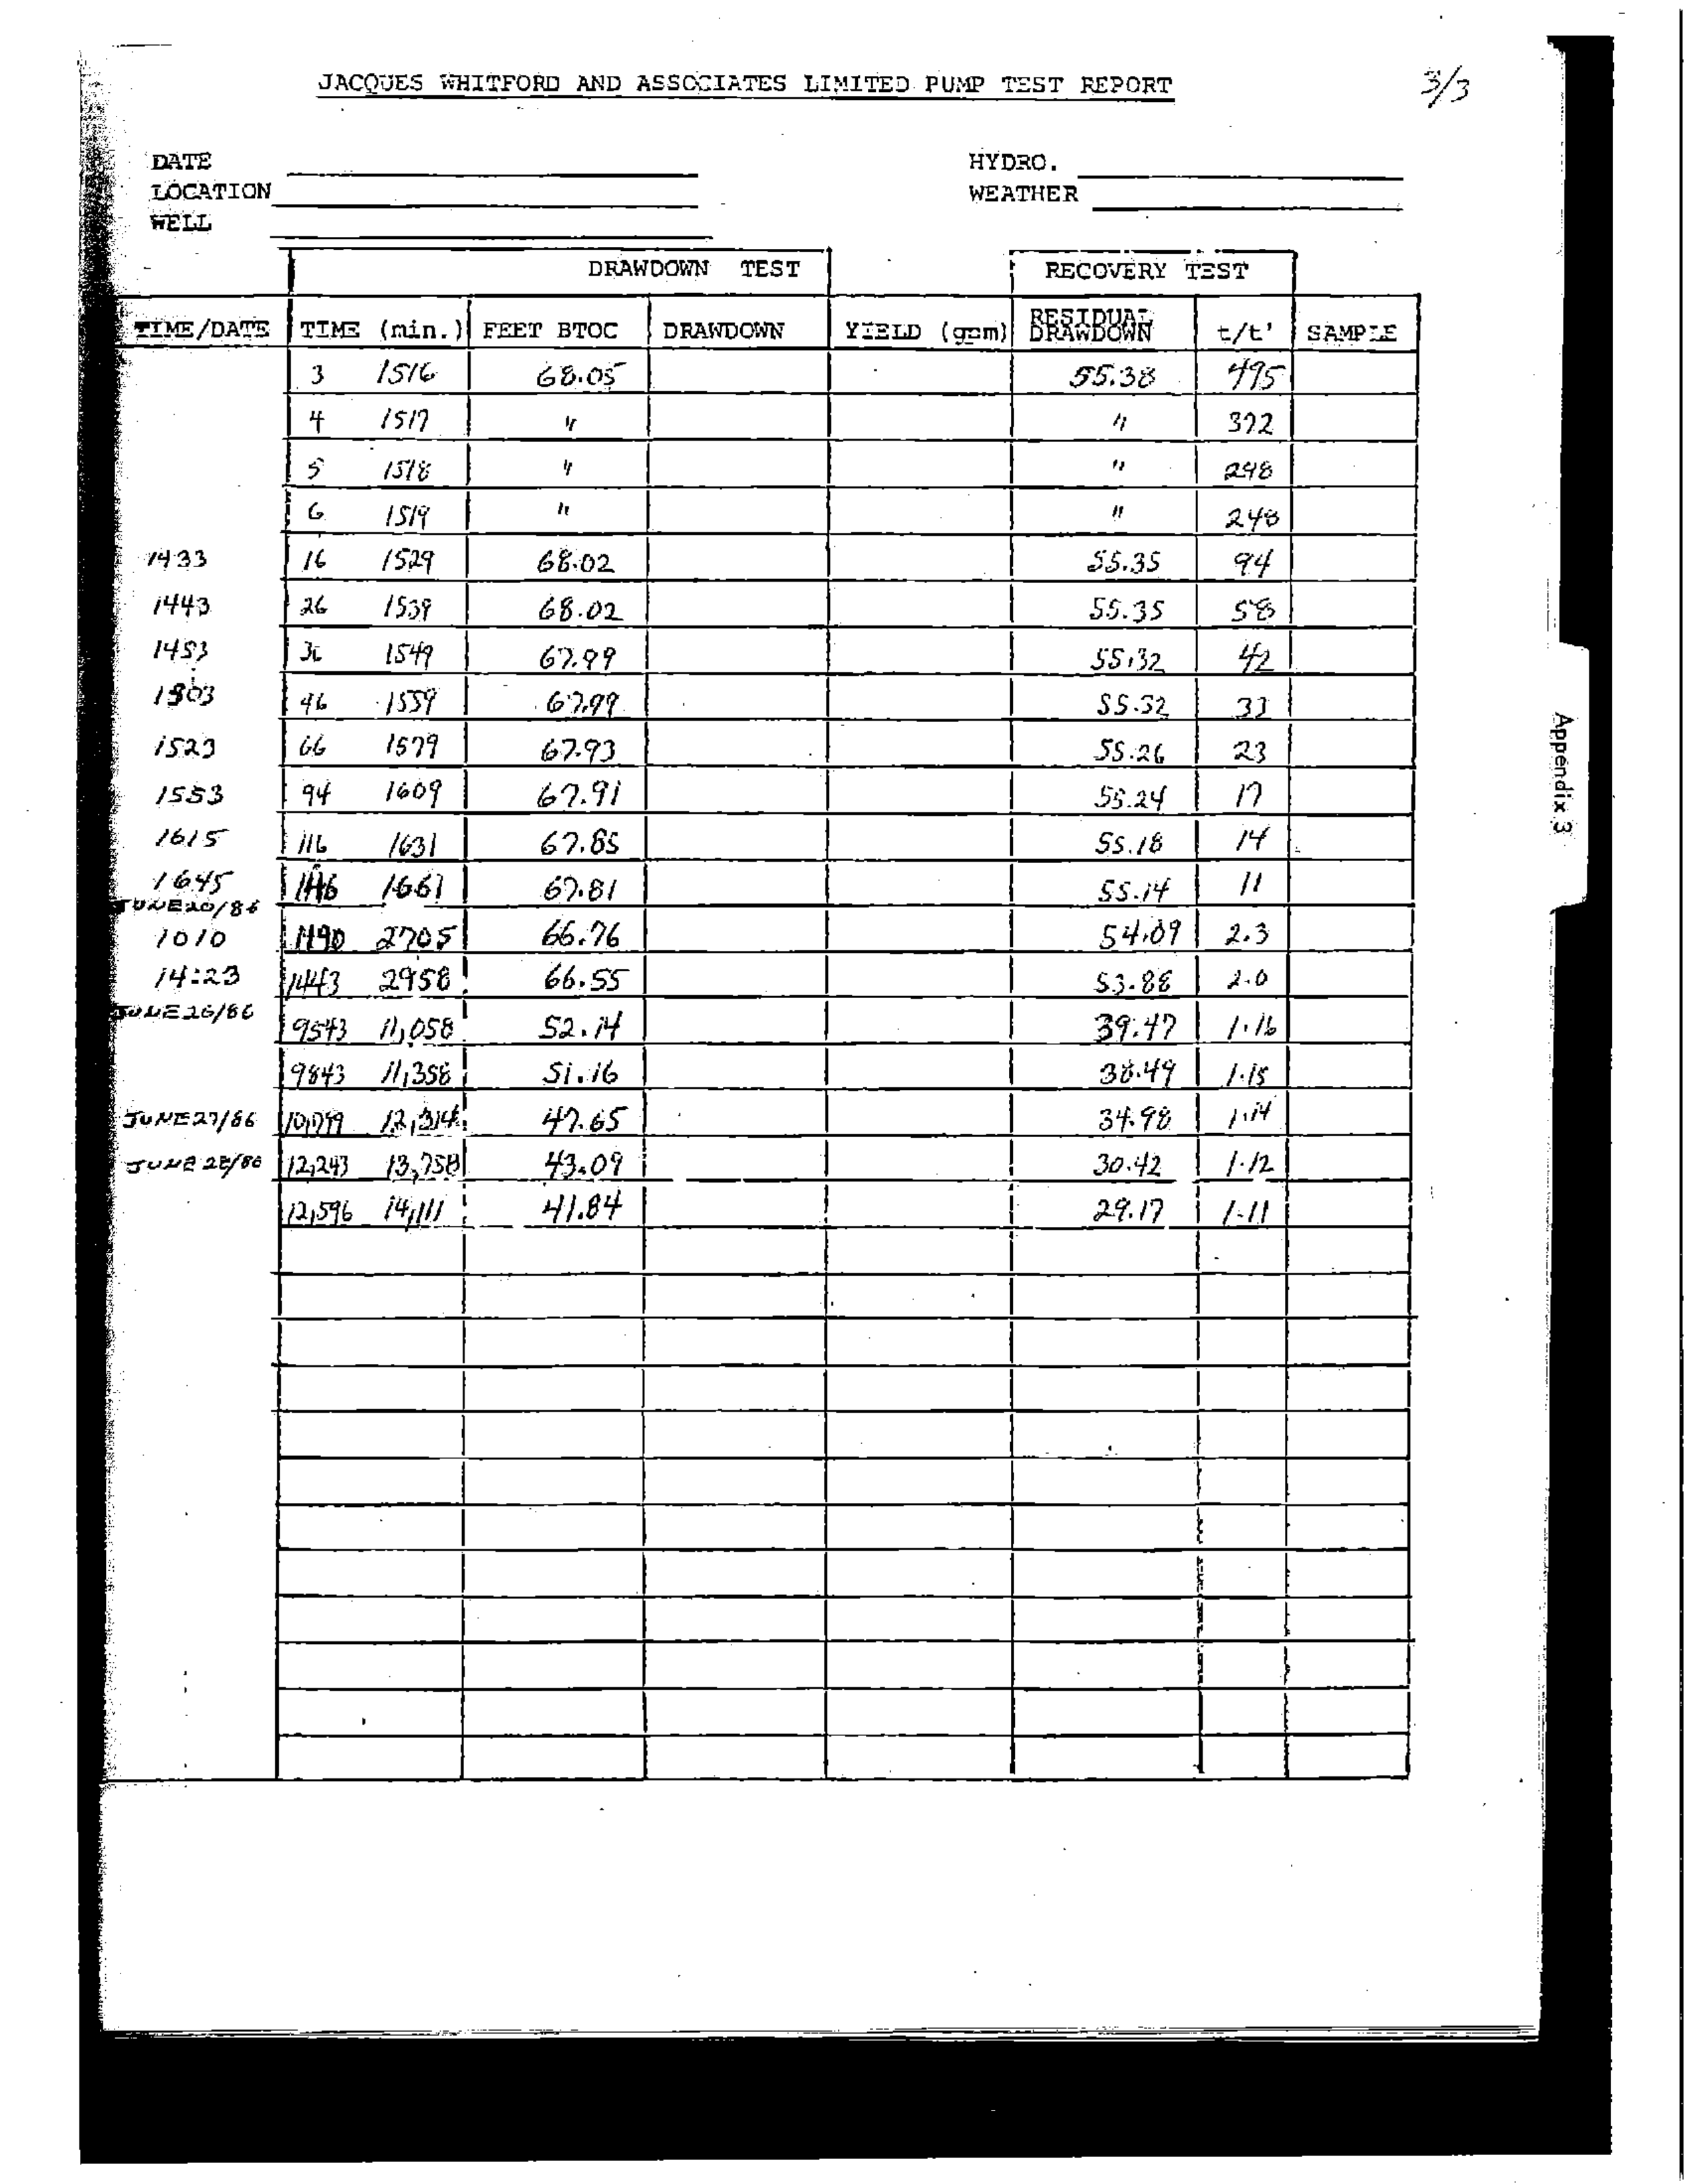 JACQUES WHITFORD AND ASSOCIATES LIMITED PUMP TEST REPORT 3/3
DATE HYDRO.
LOCATION WEATHER
WELL
DRAWDOWN TEST RECOVERY TEST
TIME/DATE TIME (min.) FEET BTOC DRAWDOWN YIELD (gpm) RESIDUAL DRAWDOWN t/t' SAMPLE
3 1516 68.05 55.38 495
4 1517 " " 372
5 1518 " " 298
6 1519 " " 248
1433 16 1529 68.02 55.35 94
1443 26 1539 68.02 55.35 58
1453 36 1549 67.99 55.32 42
1503 46 1559 67.99 55.32 33
1523 66 1579 67.93 55.26 23
1553 94 1609 67.91 55.24 17
1615 116 1631 67.85 55.18 14
1645 146 1661 67.81 55.14 11
JUNE 20/86
1010 1190 2705 66.76 54.09 2.3
14:23 1443 2958 66.55 53.88 2.0
JUNE 26/86
9543 11,058 52.14 39.47 1.16
9843 11,358 51.16 38.49 1.15
JUNE 27/86 10,799 12,314 47.65 34.98 1.14
JUNE 28/86 12,243 13,758 43.09 30.42 1.12
12,596 14,111 41.84 29.17 1.11
Appendix 3